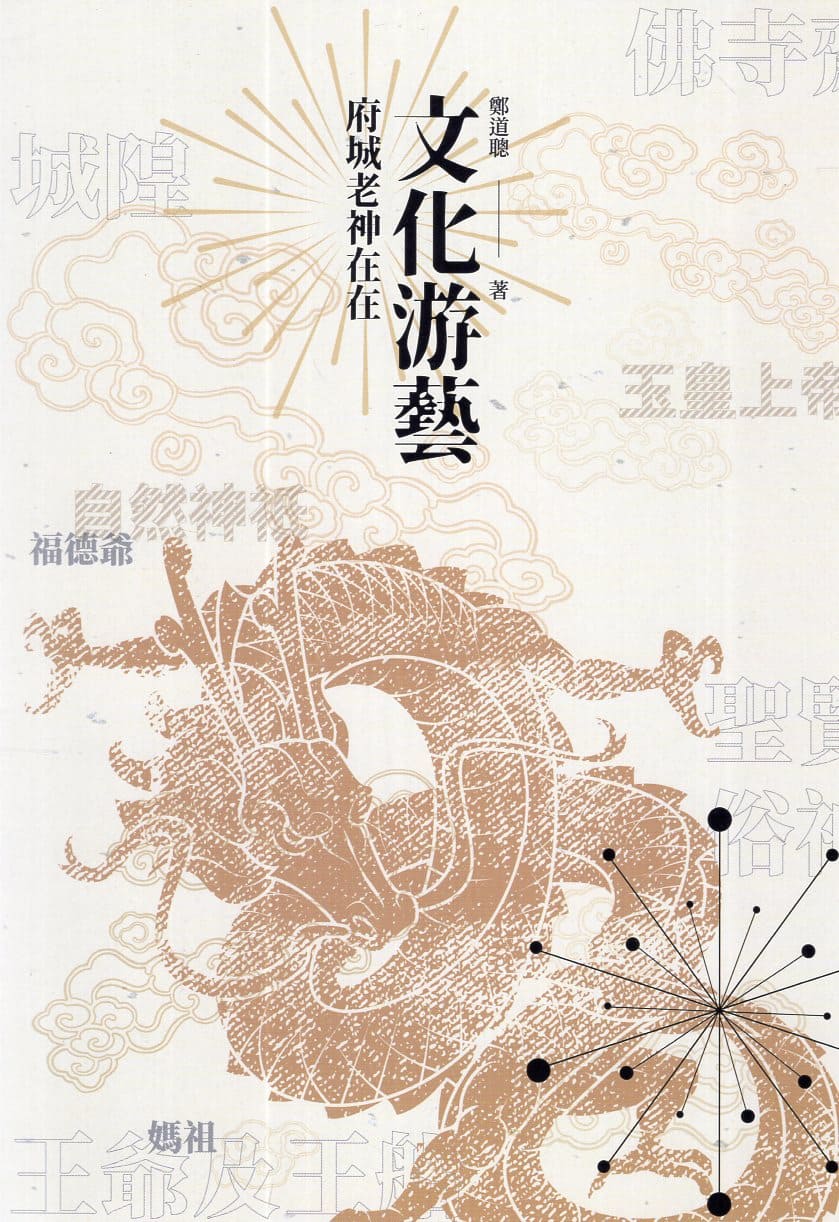 佛寺
城隍
鄭道聰 著
文化游藝
府城老神在在
玉皇上帝
自然神祇
福德爺
聖賢
俗神
媽祖
王爺及王船